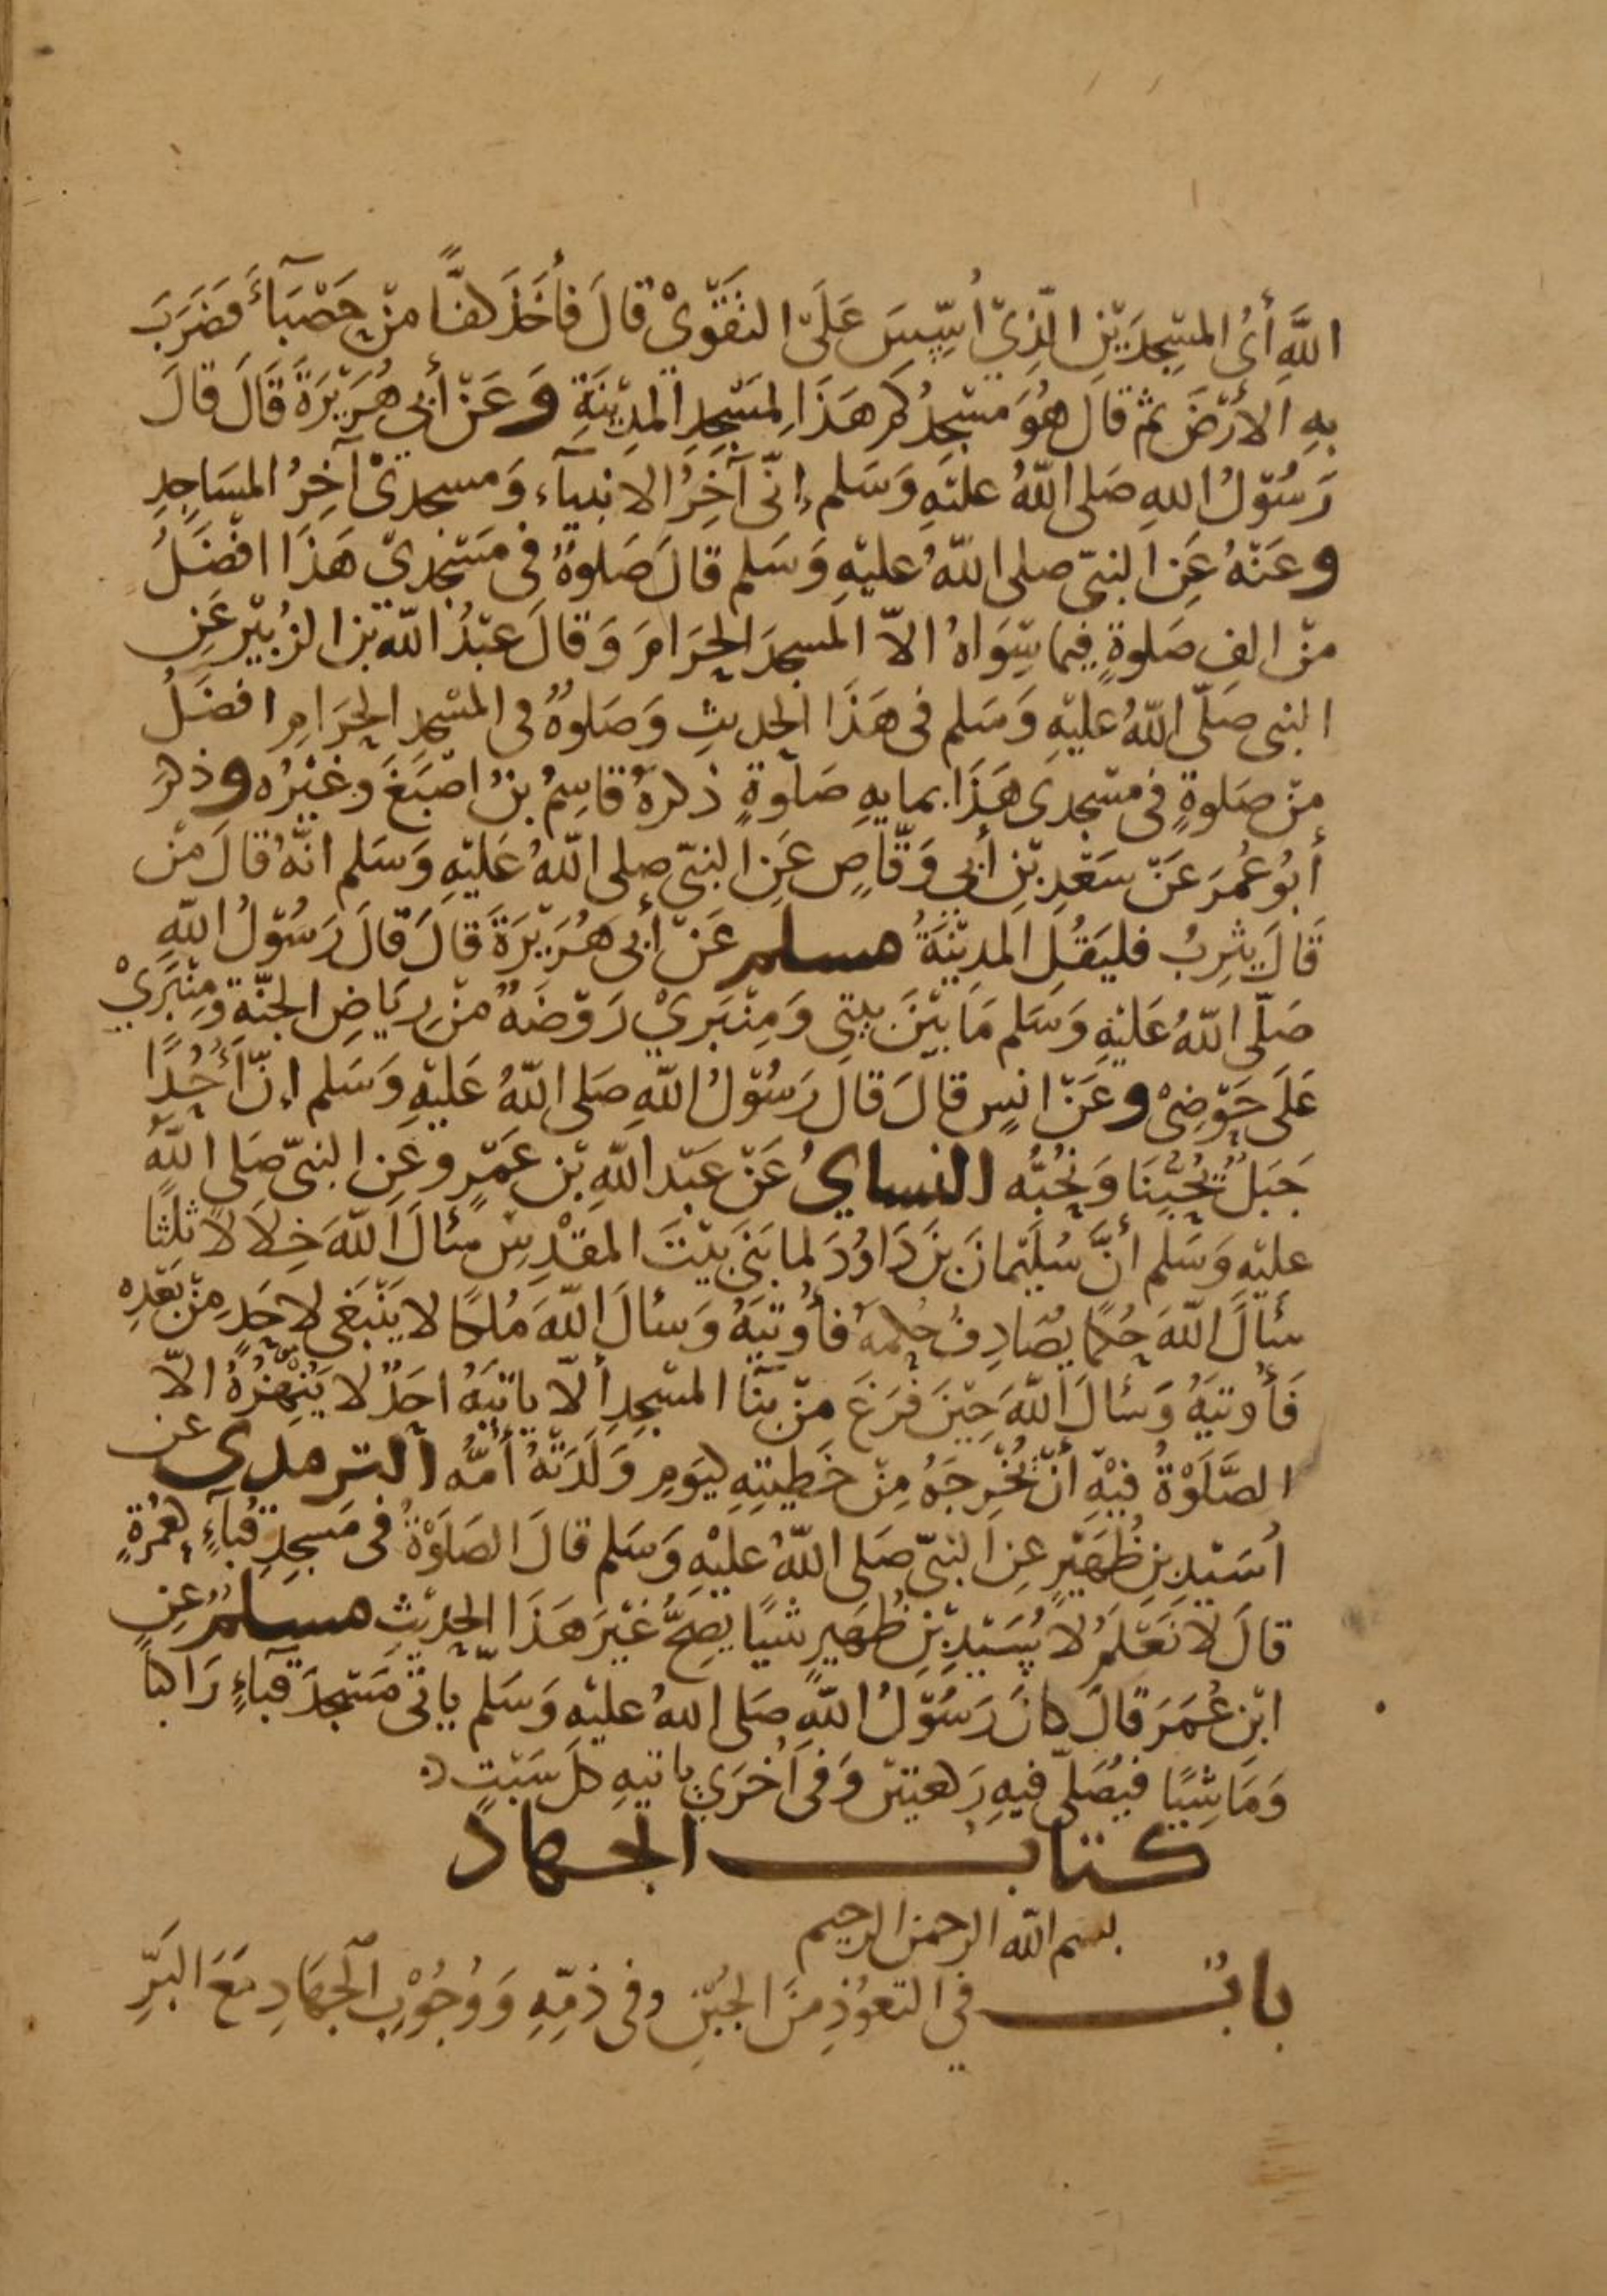 اللَّهِ أَيُّ المسْجِدَيْنِ الَّذِيْ أُسِّسَ عَلَى التَّقْوَىْ قَالَ فَأَخَذَ كفًّا مِنْ حَصْبَآءَ فَضَرَبَ
بِهِ الأَرْضَ ثُمَّ قَالَ هُوَ مَسْجِدُكُمْ هَذَا لِمَسْجِدِ المدِيْنَةِ وَعَنْ أَبِي هُرَيْرَةَ قَالَ قَالَ
رَسُوْلُ اللهِ صَلى اللَّهُ عَليْهِ وَسَلم إِنِّى آخِرُ الانبيآءِ وَمسجدىْ آخِرُ المسَاجِدِ
وعَنْهُ عَنِ النبىّ صلى اللَّهُ عليْهِ وَسَلم قَالَ صَلوةٌ فى مَسْجِدِيْ هَذَا افْضَلُ
مِنْ الفِ صَلوةٍ فِيمَا سِوَاهُ الاّ المسجدَ الحَرَامَ وَقَالَ عَبْدُ اللَّه بْن الزُبَيْر عَنِ
النبى صَلّى اللَّهُ عليْهِ وَسَلم فى هَذَا الحديثِ وَصَلوةٌ فى المسْجِدِ الحَرَامِ افضَلُ
مِنْ صَلوةٍ فى مسْجِدى هَذَا بمايةِ صَلوةٍ ذكرهُ قاسِمُ بْنُ اصْبَغَ وَغَيْرُه وذكر
أَبُو عُمَرَ عَنْ سَعْدِ بْنِ أَبِي وَقَّاصٍ عَنِ النبىّ صلى اللَّهُ عَليْهِ وَسَلم انَّهُ قَالَ مَنْ
قَالَ يثرِبُ فليَقُلِ المدِيْنَةُ مسلم عَنْ أَبِى هُرَيْرَةَ قَالَ قَالَ رَسُوْلُ اللَّهِ
صَلّى اللَّهُ عَليْهِ وَسَلم مَا بَيْنَ بيتى وَمِنْبَرِيْ رَوْضَةٌ مِنْ رِيَاضِ الجنَّةِ وَمِنْبَرِيْ
عَلَى حَوْضِىْ وعَنْ انَسٍ قَالَ قَالَ رَسُوْلُ اللَّهِ صَلى اللَّهُ عَليْهِ وَسَلم إِنَّ أُحُدًا
جَبَلٌ يُحِبُّنَا وَنُحِبُّه النساي عَنْ عَبْد اللَّهِ بْن عَمْرٍو عَنِ النبىّ صَلى اللَّهُ
عليْهِ وَسَلم أَنَّ سُلَيْمانَ بْنَ دَاوُدَ لما بَنَى بَيْتَ المقْدِسِ سَأَلَ اللَّهَ خِلَالًا ثلثًا
سأَلَ اللَّهَ حُكمًا يُصَادِفُ حُكمَهُ فَأُوتيَهُ وَسألَ اللَّهَ مُلكًا لا يَنْبَغى لاحَدٍ مِنْ بَعْدِهِ
فَأُوتيَهُ وَسَأَلَ اللَّهَ حِيْنَ فَرَغَ مِنْ بنَآ المسْجِدِ أَلّا ياتيَهُ احَدٌ لا يَنْهَزُهُ الاّ
الصَّلَوْةُ فيْهِ أَنْ تُخْرِجَهُ مِنْ خَطِيتِهِ ليَوْمِ وَلَدَتْهُ أُمُّه الترمدى عن
اُسَيْدِ بنِ ظُهَيْرٍ عنِ النبىّ صَلى اللَّهُ عليْهِ وَسَلم قَالَ الصَلَوْةُ فى مَسجِدِ قُبَآءٍ كعُمْرَةٍ
قَالَ لَا نَعْلَمُ لاُسَيْدِ بْنِ ظُهَيرٍ شَيًا يَصِحُّ غَيْرَ هَذَا الحديْثِ مسلمٌ عَنِ
ابْنِ عُمَرَ قَالَ كانَ رَسُوْلُ اللَّهِ صَلى اللهُ عليْهِ وَسَلَّم ياتى مَسْجِدَ قبَآءٍ رَاكبًا
وَمَاشِيًا فيُصَلّى فيهِ رَكعتين وَفى أُخْرَي ياتيهِ كلّ سَبْتٍ
كتاب الجهاد
بسم اللَّه الرحمن الرحيم
بابٌ في التعَوُّذِ مِنَ الجُبْنِ وفى ذمّهِ وَوُجُوْبِ الجهَادِ مَعَ البَرِّ